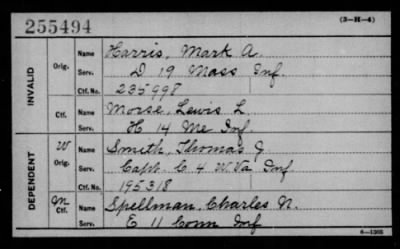 255494 (3-H-4)
INVALID Orig. Name Harris, Mark A.
Serv. D 19 Mass Inf.
Ctf. No. 235998
Ctf. Name Morse, Lewis L.
Serv. H 14 Me Inf.
DEPENDENT W Orig. Name Smith, Thomas J.
Serv. Capt. C 4 W Va Inf
Ctf. No. 195318
M Ctf. Name Spellman, Charles N.
Serv. E 11 Conn Inf